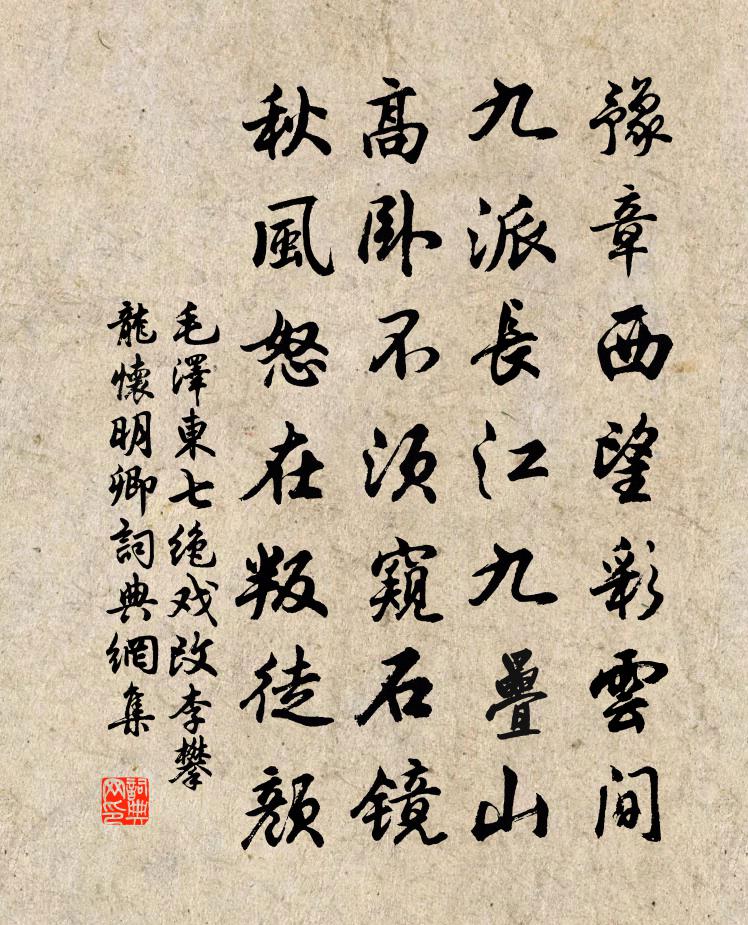 豫章西望彩雲间
九派長江九疊山
高卧不须窺石镜
秋風怒在叛徒颜
毛澤東七绝戏改李攀
龍懷明卿詞典網集
詞典网印